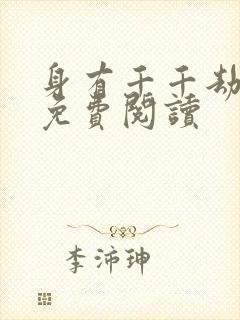 身有千千劫
免費閱讀
李沛珅